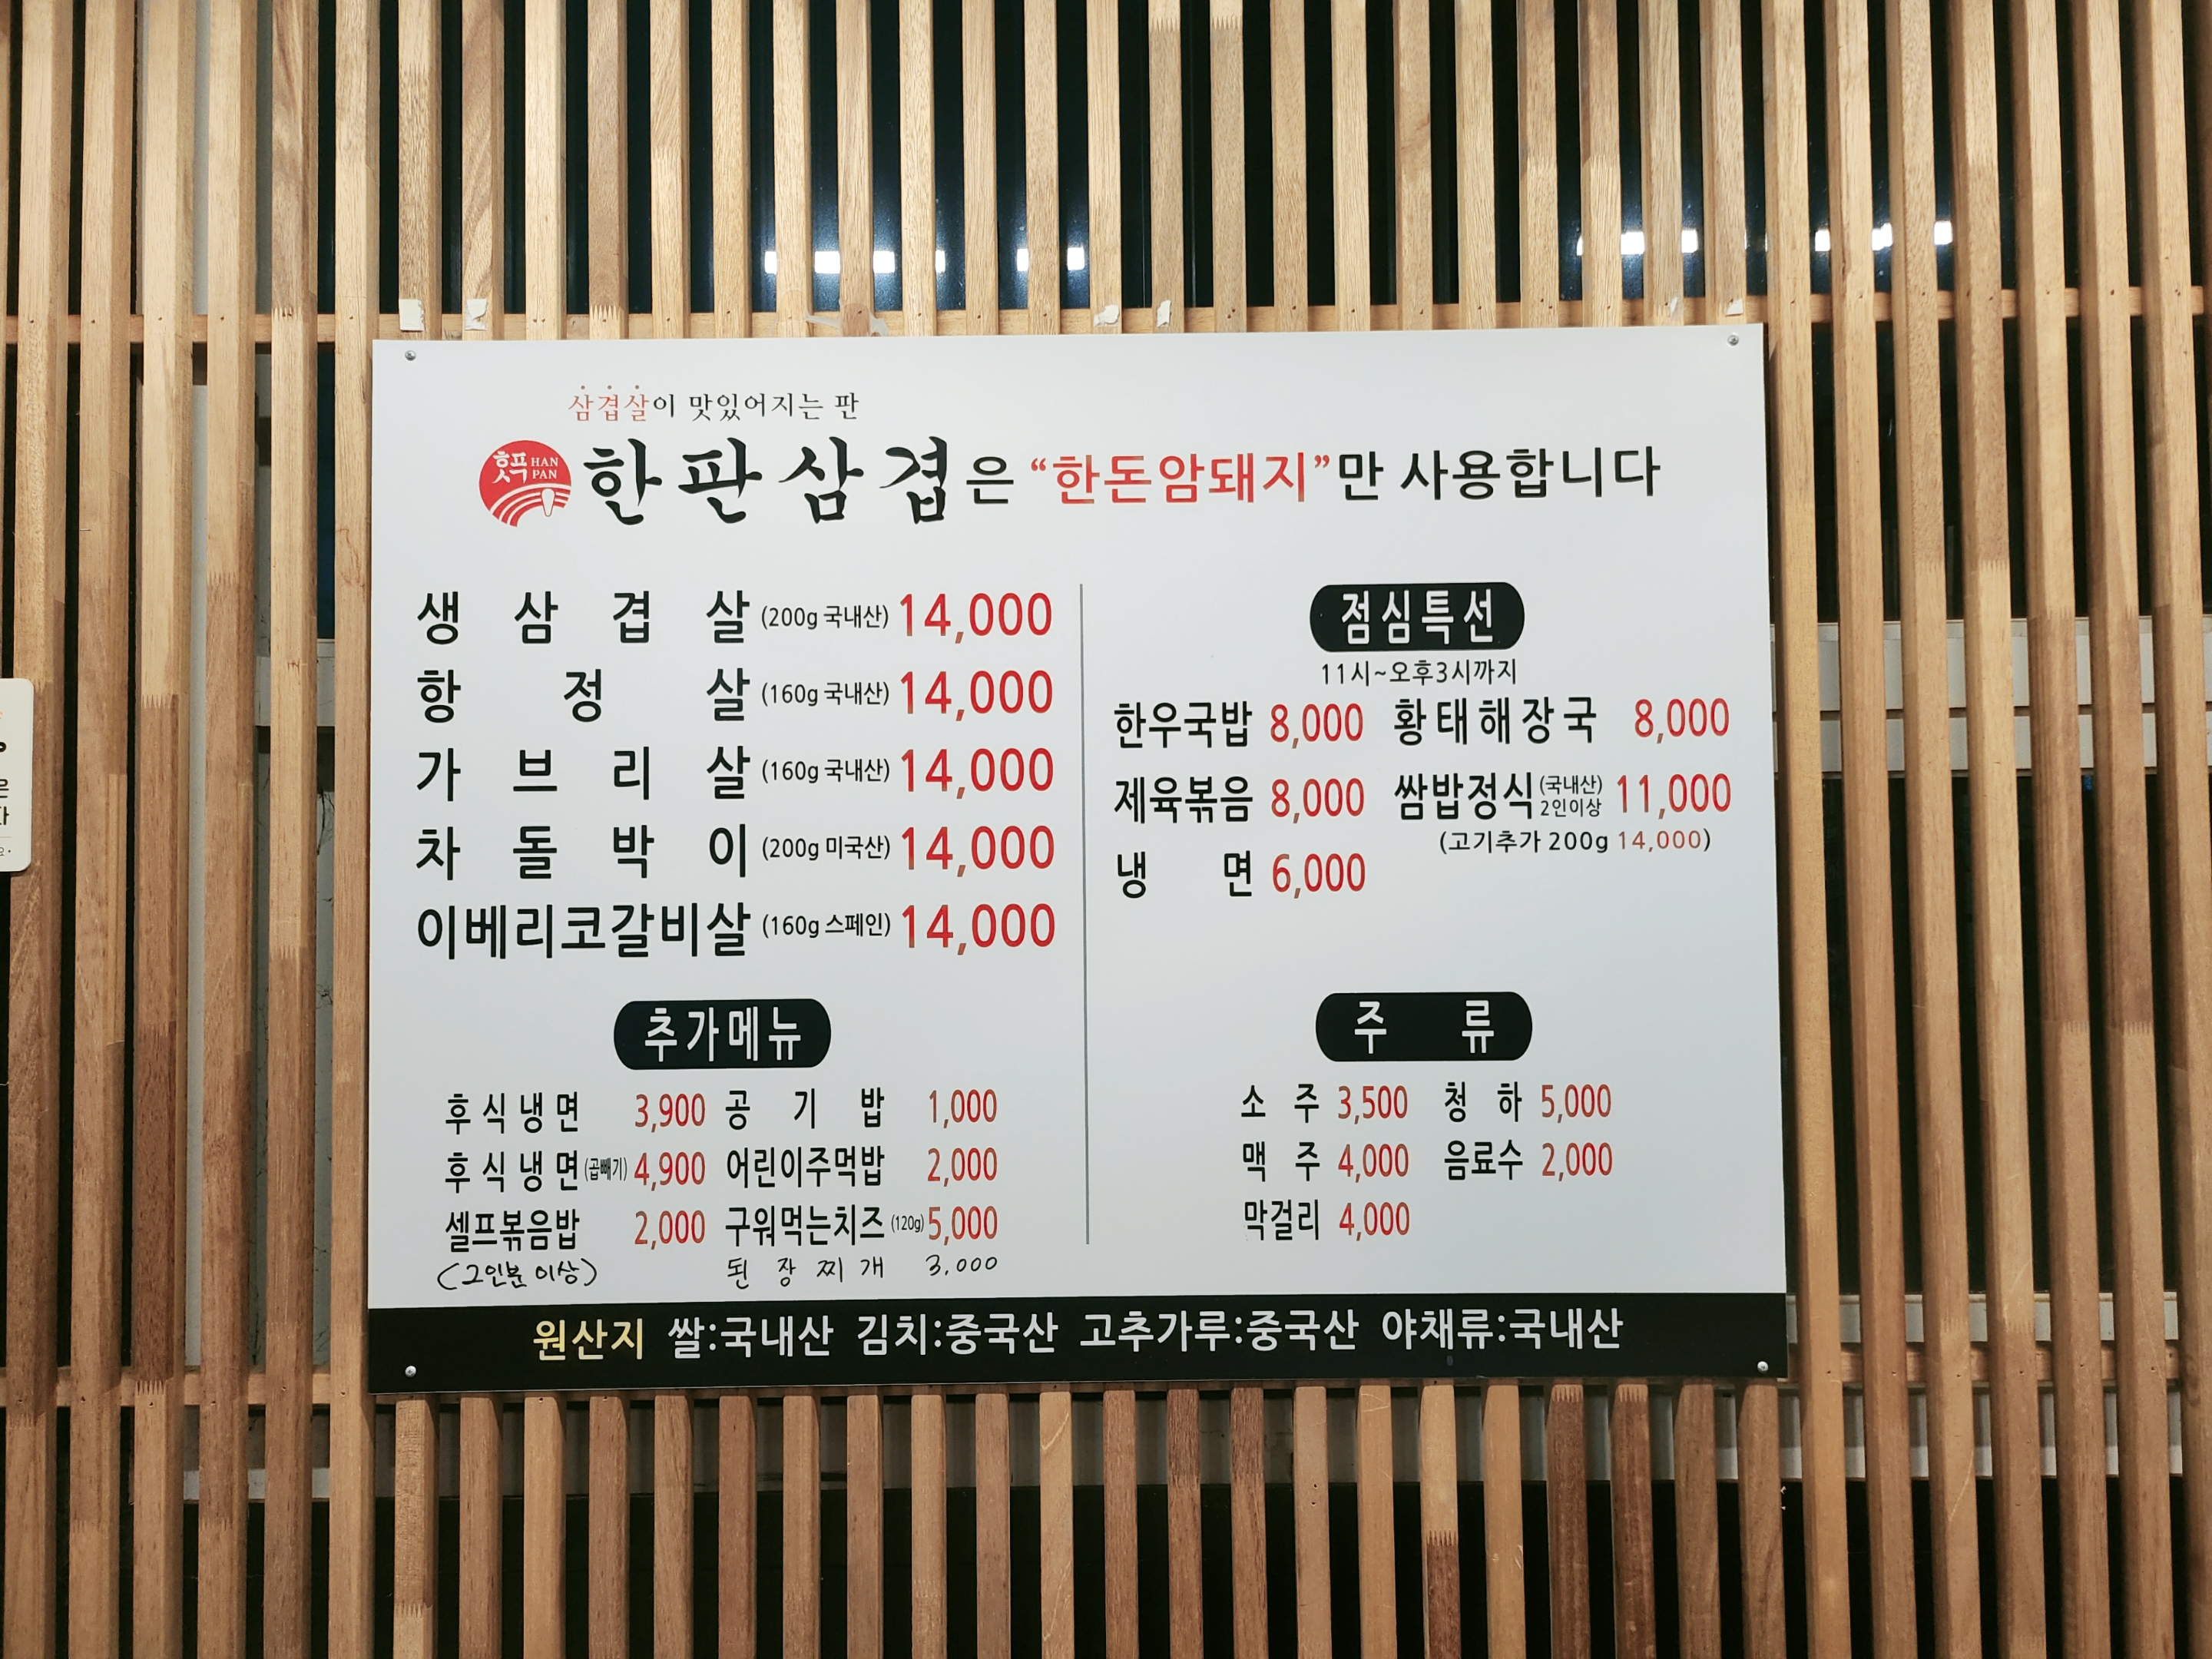 삼겹살이 맛있어지는 판
핫판 HAN PAN
한판삼겹은 “한돈암돼지”만 사용합니다
생삼겹살 (200g 국내산) 14,000
항정살 (160g 국내산) 14,000
가브리살 (160g 국내산) 14,000
차돌박이 (200g 미국산) 14,000
이베리코갈비살 (160g 스페인) 14,000
추가메뉴
후식냉면 3,900 공기밥 1,000
후식냉면(곱빼기) 4,900 어린이주먹밥 2,000
셀프볶음밥 2,000 구워먹는치즈 (120g) 5,000
(2인분 이상) 된장찌개 3,000
점심특선
11시~오후3시까지
한우국밥 8,000 황태해장국 8,000
제육볶음 8,000 쌈밥정식 (국내산) 2인이상 11,000
(고기추가 200g 14,000)
냉면 6,000
주류
소주 3,500 청하 5,000
맥주 4,000 음료수 2,000
막걸리 4,000
원산지 쌀:국내산 김치:중국산 고추가루:중국산 야채류:국내산